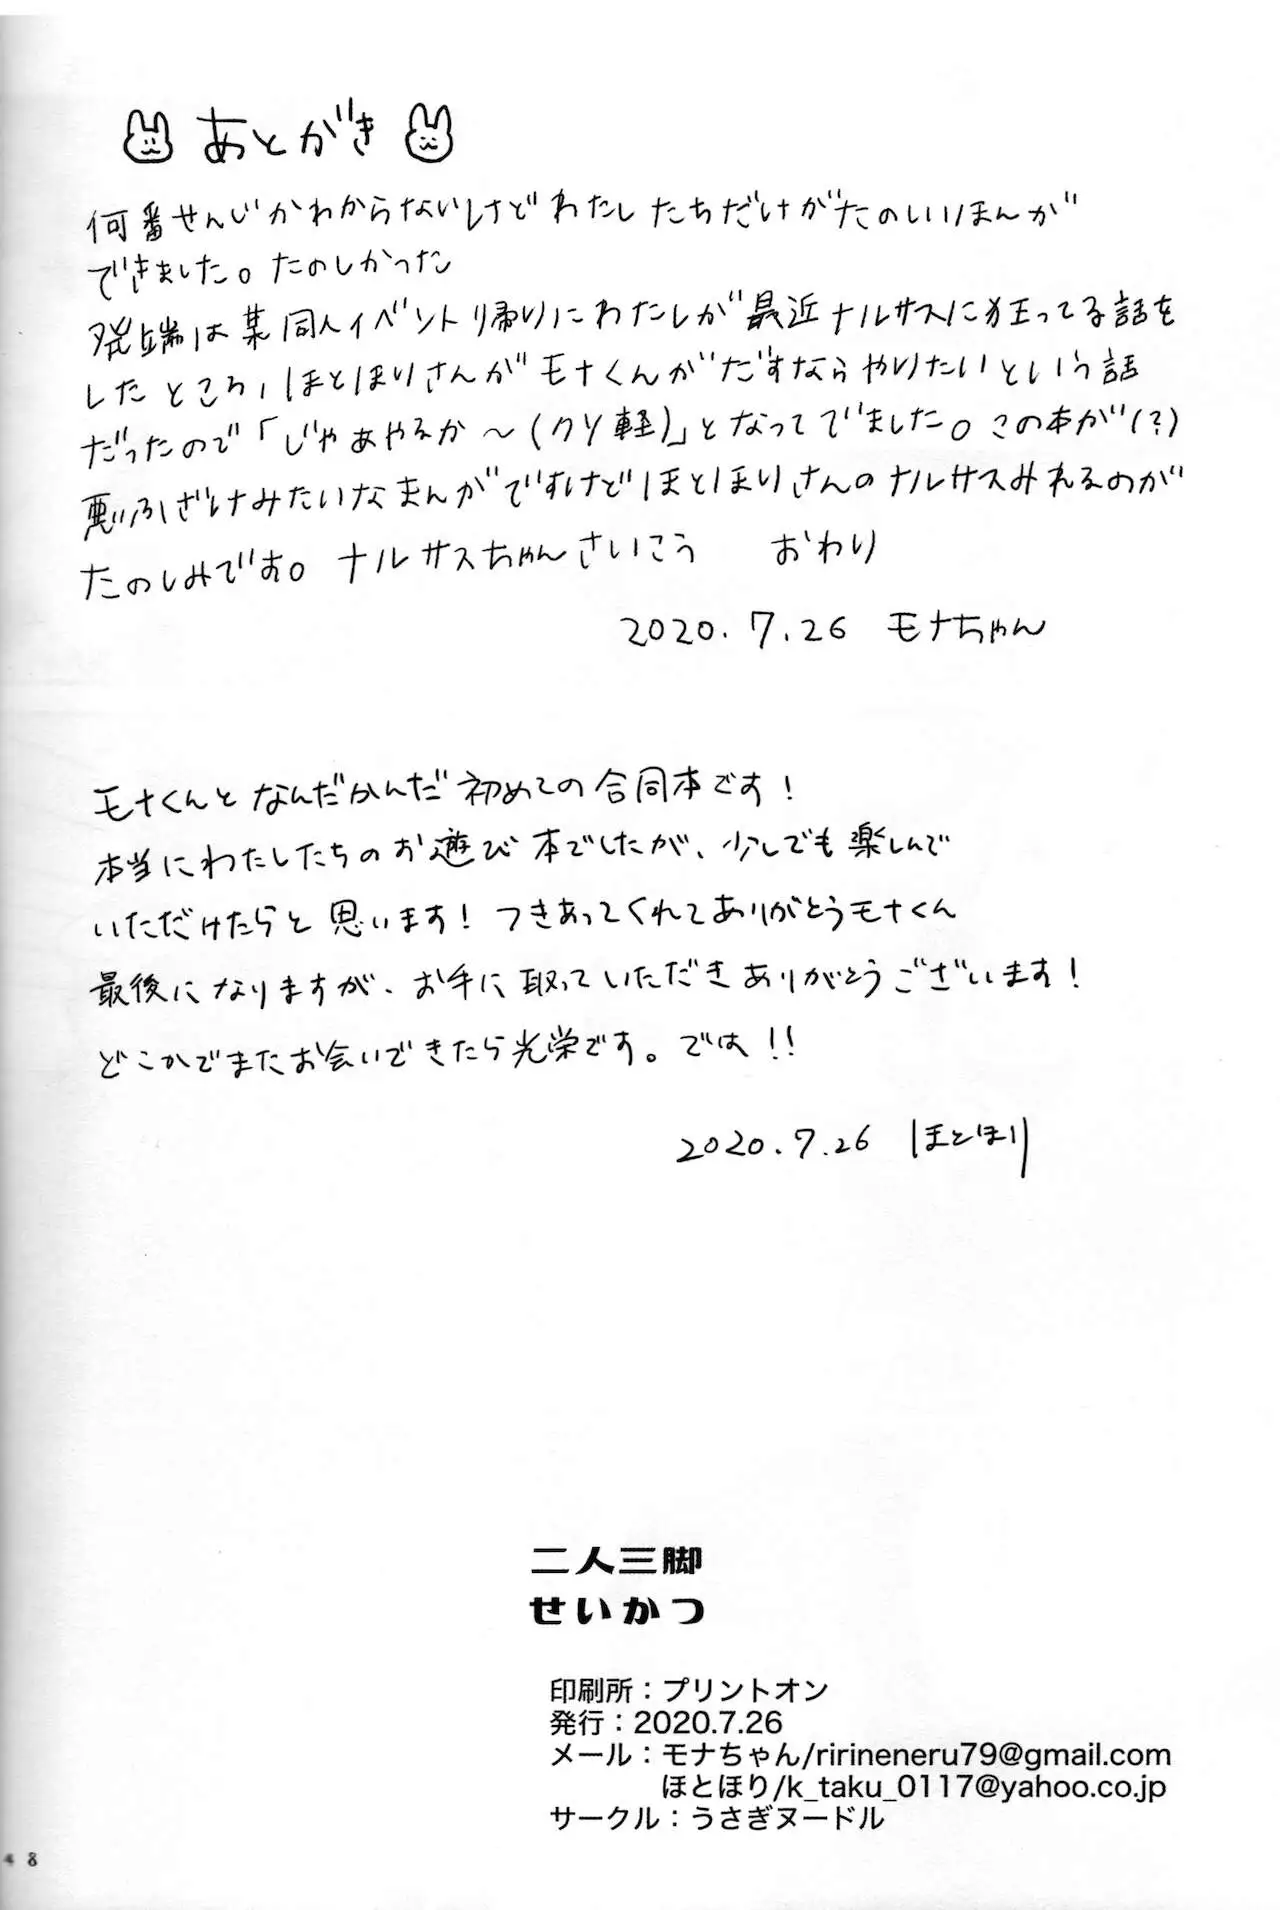 あとがき
何番せんじかわからないけどわたしたちだけがたのしいほんが
できました。たのしかった
発端は某同人イベント帰りにわたしが最近ナルサスに狂ってる話を
したところ、ほとほりさんがモナくんがだすならやりたいという話
だったので「じゃあやるか〜(クソ軽)」となってでました。この本が(?)
悪ふざけみたいなまんがですけどほとほりさんのナルサスみれるのが
たのしみです。ナルサスちゃんさいこう おわり
2020.7.26 モナちゃん
モナくんとなんだかんだ初めての合同本です!
本当にわたしたちのお遊び本でしたが、少しでも楽しんで
いただけたらと思います!つきあってくれてありがとうモナくん
最後になりますが、お手に取っていただきありがとうございます!
どこかでまたお会いできたら光栄です。では!!
2020.7.26 ほとほり
二人三脚
せいかつ
印刷所:プリントオン
発行:2020.7.26
メール:モナちゃん/ririneneru79@gmail.com
ほとほり/k_taku_0117@yahoo.co.jp
サークル:うさぎヌードル
48